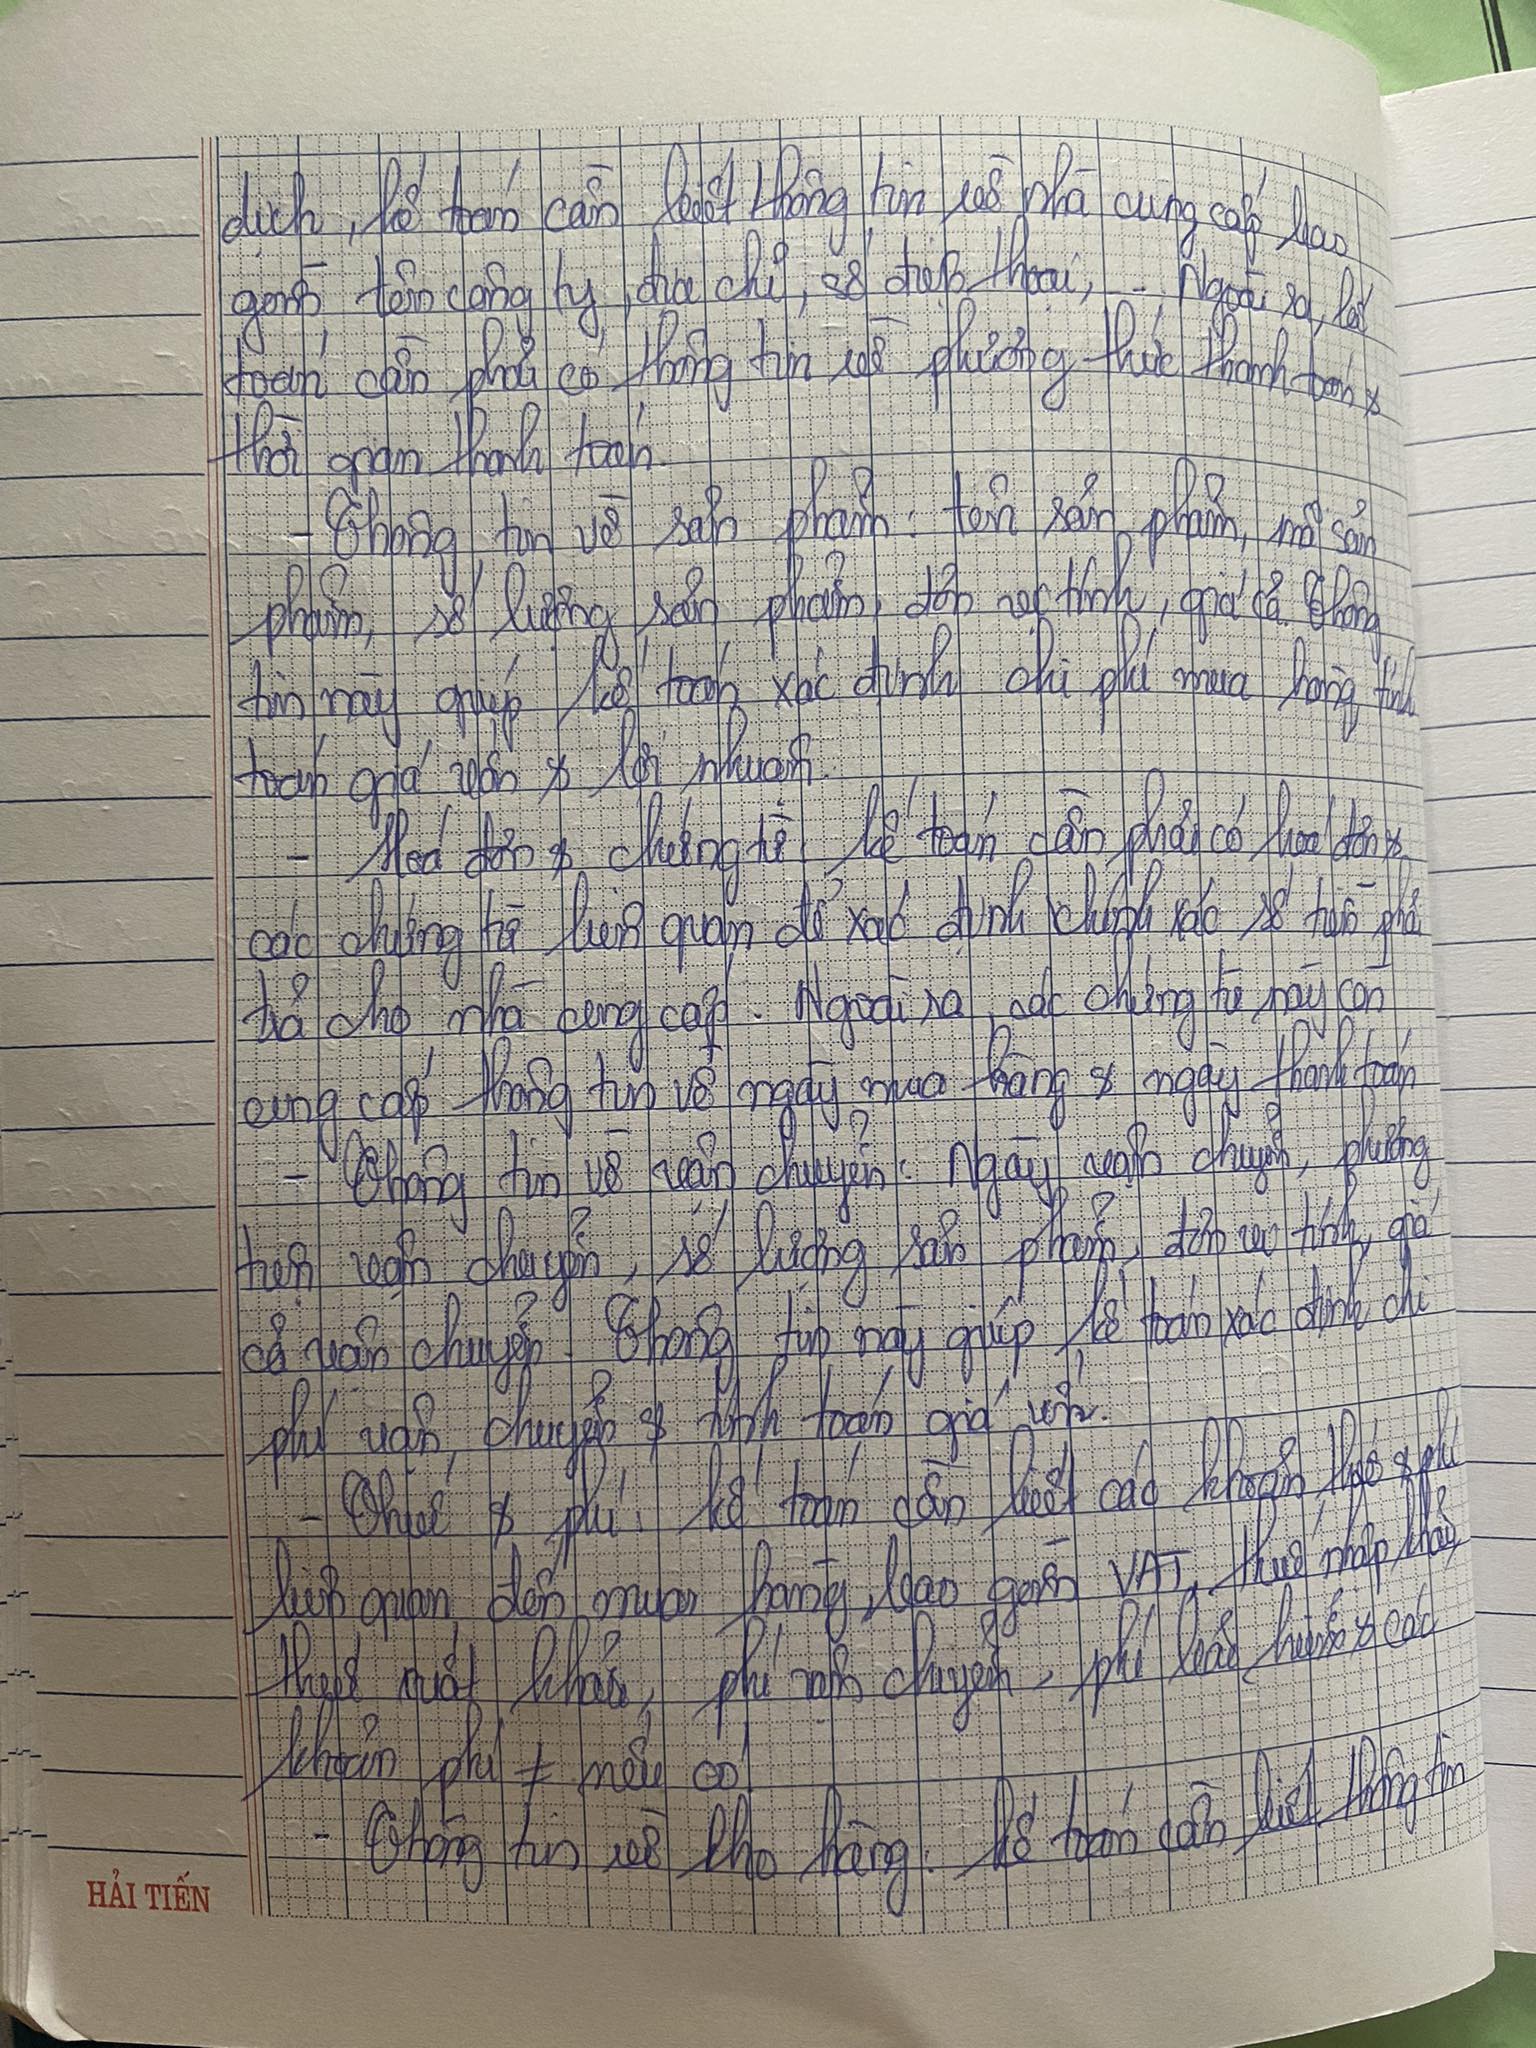 dịch, kế toán cần biết thông tin về nhà cung cấp bao
gồm tên công ty, địa chỉ, số điện thoại, ... Ngoài ra, kế
toán cần phải có thông tin về phương thức thanh toán &
thời gian thanh toán.
- Thông tin về sản phẩm: tên sản phẩm, mã sản
phẩm, số lượng sản phẩm, đơn vị tính, giá cả. Thông
tin này giúp kế toán xác định chi phí mua hàng tính
toán giá vốn & lợi nhuận.
- Hoá đơn & chứng từ: kế toán cần phải có hoá đơn &
các chứng từ liên quan để xác định chính xác số tiền phải
trả cho nhà cung cấp. Ngoài ra, các chứng từ này còn
cung cấp thông tin về ngày mua hàng & ngày thanh toán
- Thông tin về vận chuyển: Ngày vận chuyển, phương
tiện vận chuyển, số lượng sản phẩm, đơn vị tính, giá
cả vận chuyển. Thông tin này giúp kế toán xác định chi
phí vận chuyển & tính toán giá vốn.
- Thuế & phí: kế toán cần biết các khoản thuế & phí
liên quan đến mua hàng, bao gồm VAT, thuế nhập khẩu,
thuế xuất khẩu, phí vận chuyển, phí bảo hiểm & các
khoản phí ≠ nếu có.
- Thông tin về kho hàng: kế toán cần biết thông tin
HẢI TIẾN